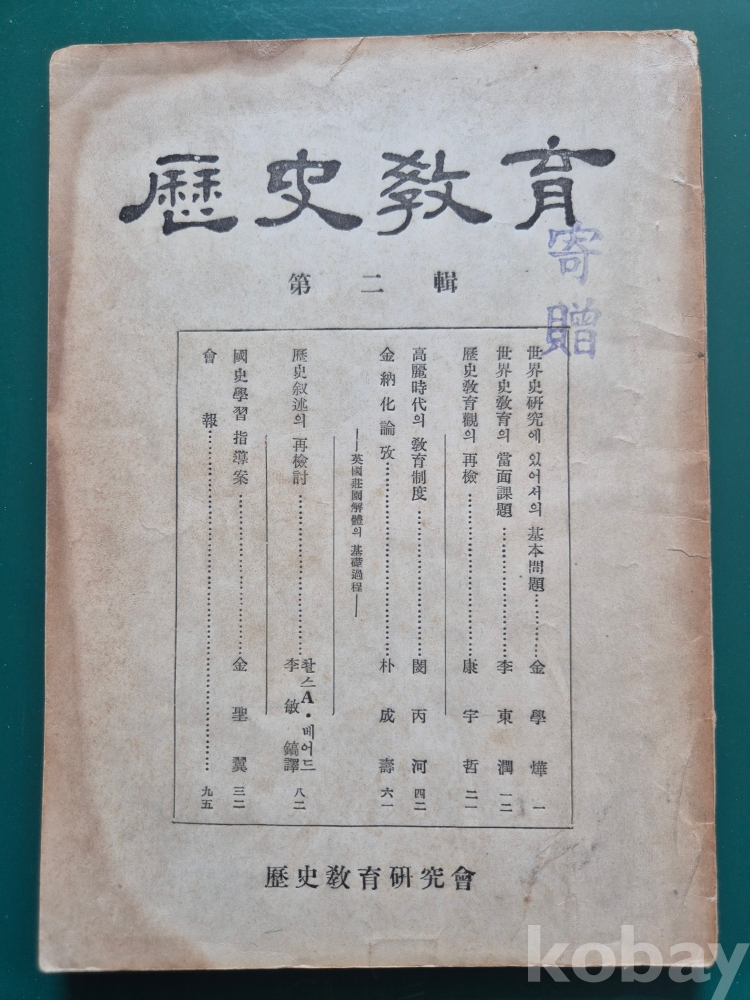 歷史敎育
第二輯
寄贈
世界史硏究에 있어서의 基本問題…………金學燁 一
世界史敎育의 當面課題…………李東潤 一二
歷史敎育觀의 再檢…………康宇哲 二一
高麗時代의 敎育制度…………閔丙河 四二
金納化論攷…………朴成壽 六一
――英國莊園解體의 基礎過程――
歷史敍述의 再檢討…………촬스A·베어드 李敏鎬譯 八二
國史學習指導案…………金聖翼 三二
會報…………九五
歷史敎育硏究會
kobay